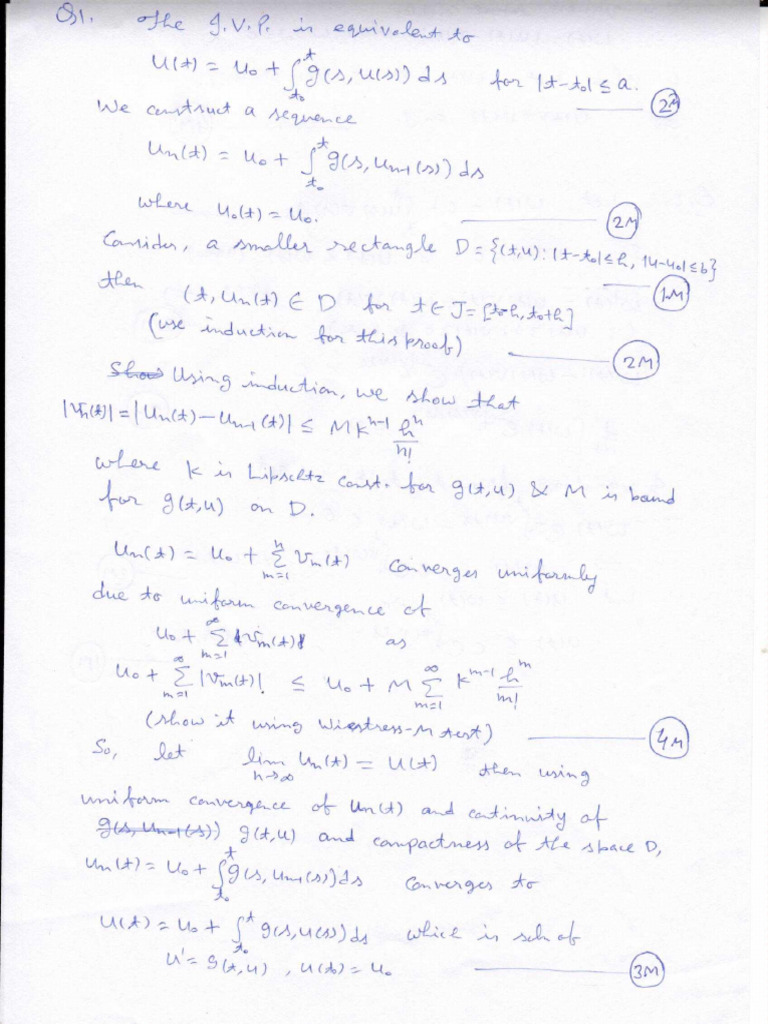 Q1. The I.V.P. is equivalent to
u(t) = u₀ + ∫_{t₀}^{t} g(s, u(s)) ds for |t-t₀| ≤ a.
(2M)
We construct a sequence
uₙ(t) = u₀ + ∫_{t₀}^{t} g(s, uₙ₋₁(s)) ds
where u₀(t) = u₀. (2M)
Consider, a smaller rectangle D = {(t,u): |t-t₀| ≤ h, |u-u₀| ≤ b}
(1M)
then (t, uₙ(t) ∈ D for t ∈ J = [t₀-h, t₀+h]
(use induction for this proof) (2M)
Using induction, we show that
|vₙ(t)| = |uₙ(t) - uₙ₋₁(t)| ≤ M K^{n-1} hⁿ/n!
where K is Lipschtz const. for g(t,u) & M is bound
for g(t,u) on D.
uₙ(t) = u₀ + Σ_{m=1}^{n} vₘ(t) converges uniformly
due to uniform convergence of
u₀ + Σ_{m=1}^{∞} vₘ(t) as
u₀ + Σ_{m=1}^{∞} |vₘ(t)| ≤ u₀ + M Σ_{m=1}^{∞} K^{m-1} h^m/m!
(show it using Wiestress-M test) (4M)
So, let lim_{n→∞} uₙ(t) = u(t) then using
uniform convergence of uₙ(t) and continuity of
g(s, uₙ₋₁(s)) g(t,u) and compactness of the space D,
uₙ(t) = u₀ + ∫_{t₀}^{t} g(s, uₙ₋₁(s)) ds converges to
u(t) = u₀ + ∫_{t₀}^{t} g(s, u(s)) ds which is soln of
u' = g(t,u), u(t₀) = u₀ (3M)